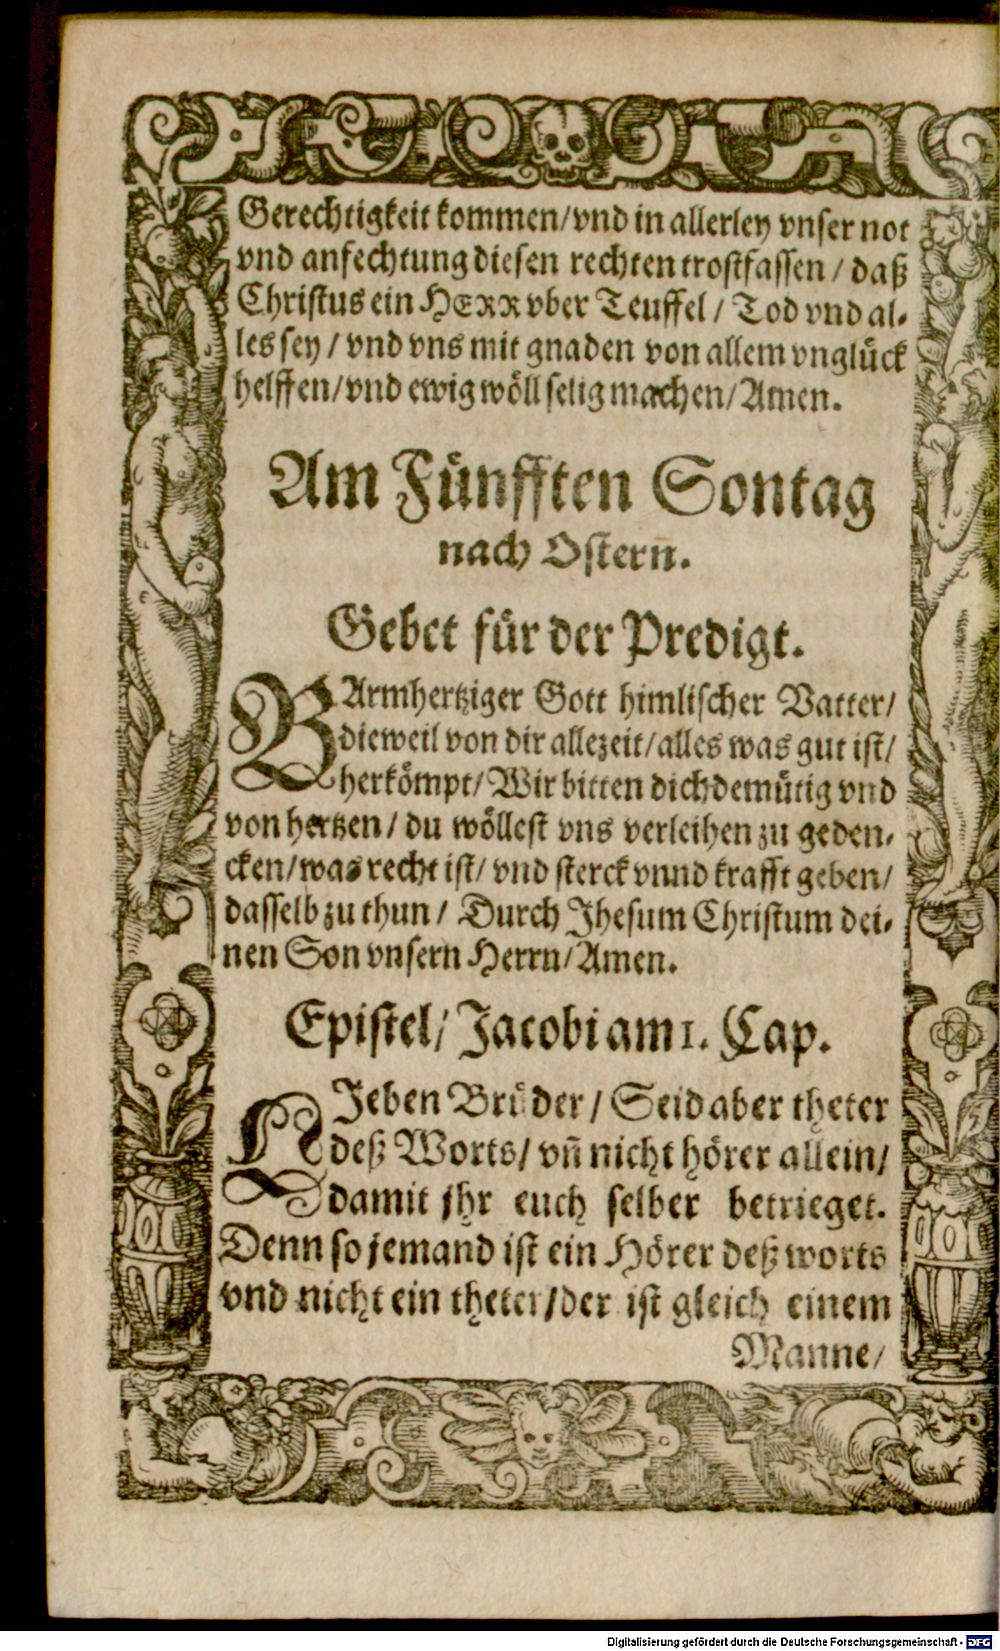 Gerechtigkeit kommen/vnd in allerley vnser not
vnd anfechtung diesen rechten trost fassen / daß
Christus ein HERR vber Teuffel / Tod vnd al-
les sey / vnd vns mit gnaden von allem vnglück
helffen/vnd ewig wöll selig machen/Amen.
Am Fünfften Sontag
nach Ostern̄.
Gebet für der Predigt.
BArmhertziger Gott himlischer Vatter/
dieweil von dir allezeit/alles was gut ist/
herkömpt/Wir bitten dich demütig vnd
von hertzen/ du wöllest vns verleihen zu geden-
cken/was recht ist/ vnd sterck vnnd krafft geben/
dasselb zu thun / Durch Jhesum Christum dei-
nen Son vnsern Herrn/Amen.
Epistel/ Jacobi am 1. Cap.
LJeben Brüder / Seid aber theter
deß Worts/ vn̄ nicht hörer allein/
damit jhr euch selber betrieget.
Denn so jemand ist ein Hörer deß worts
vnd nicht ein theter/der ist gleich einem
Manne/
Digitalisierung gefördert durch die Deutsche Forschungsgemeinschaft - DFG